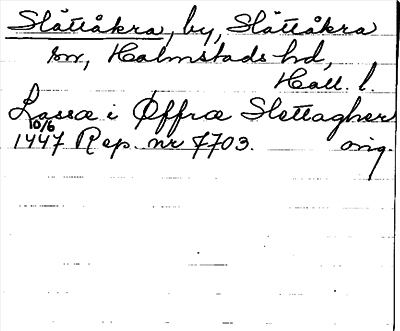 Slättåkra, by, Slättåkra
sn, Halmstads hd,
Hall. l.
Lasse i Øffræ Slettagher
10/6
1447 Rep. nr 7703. orig.